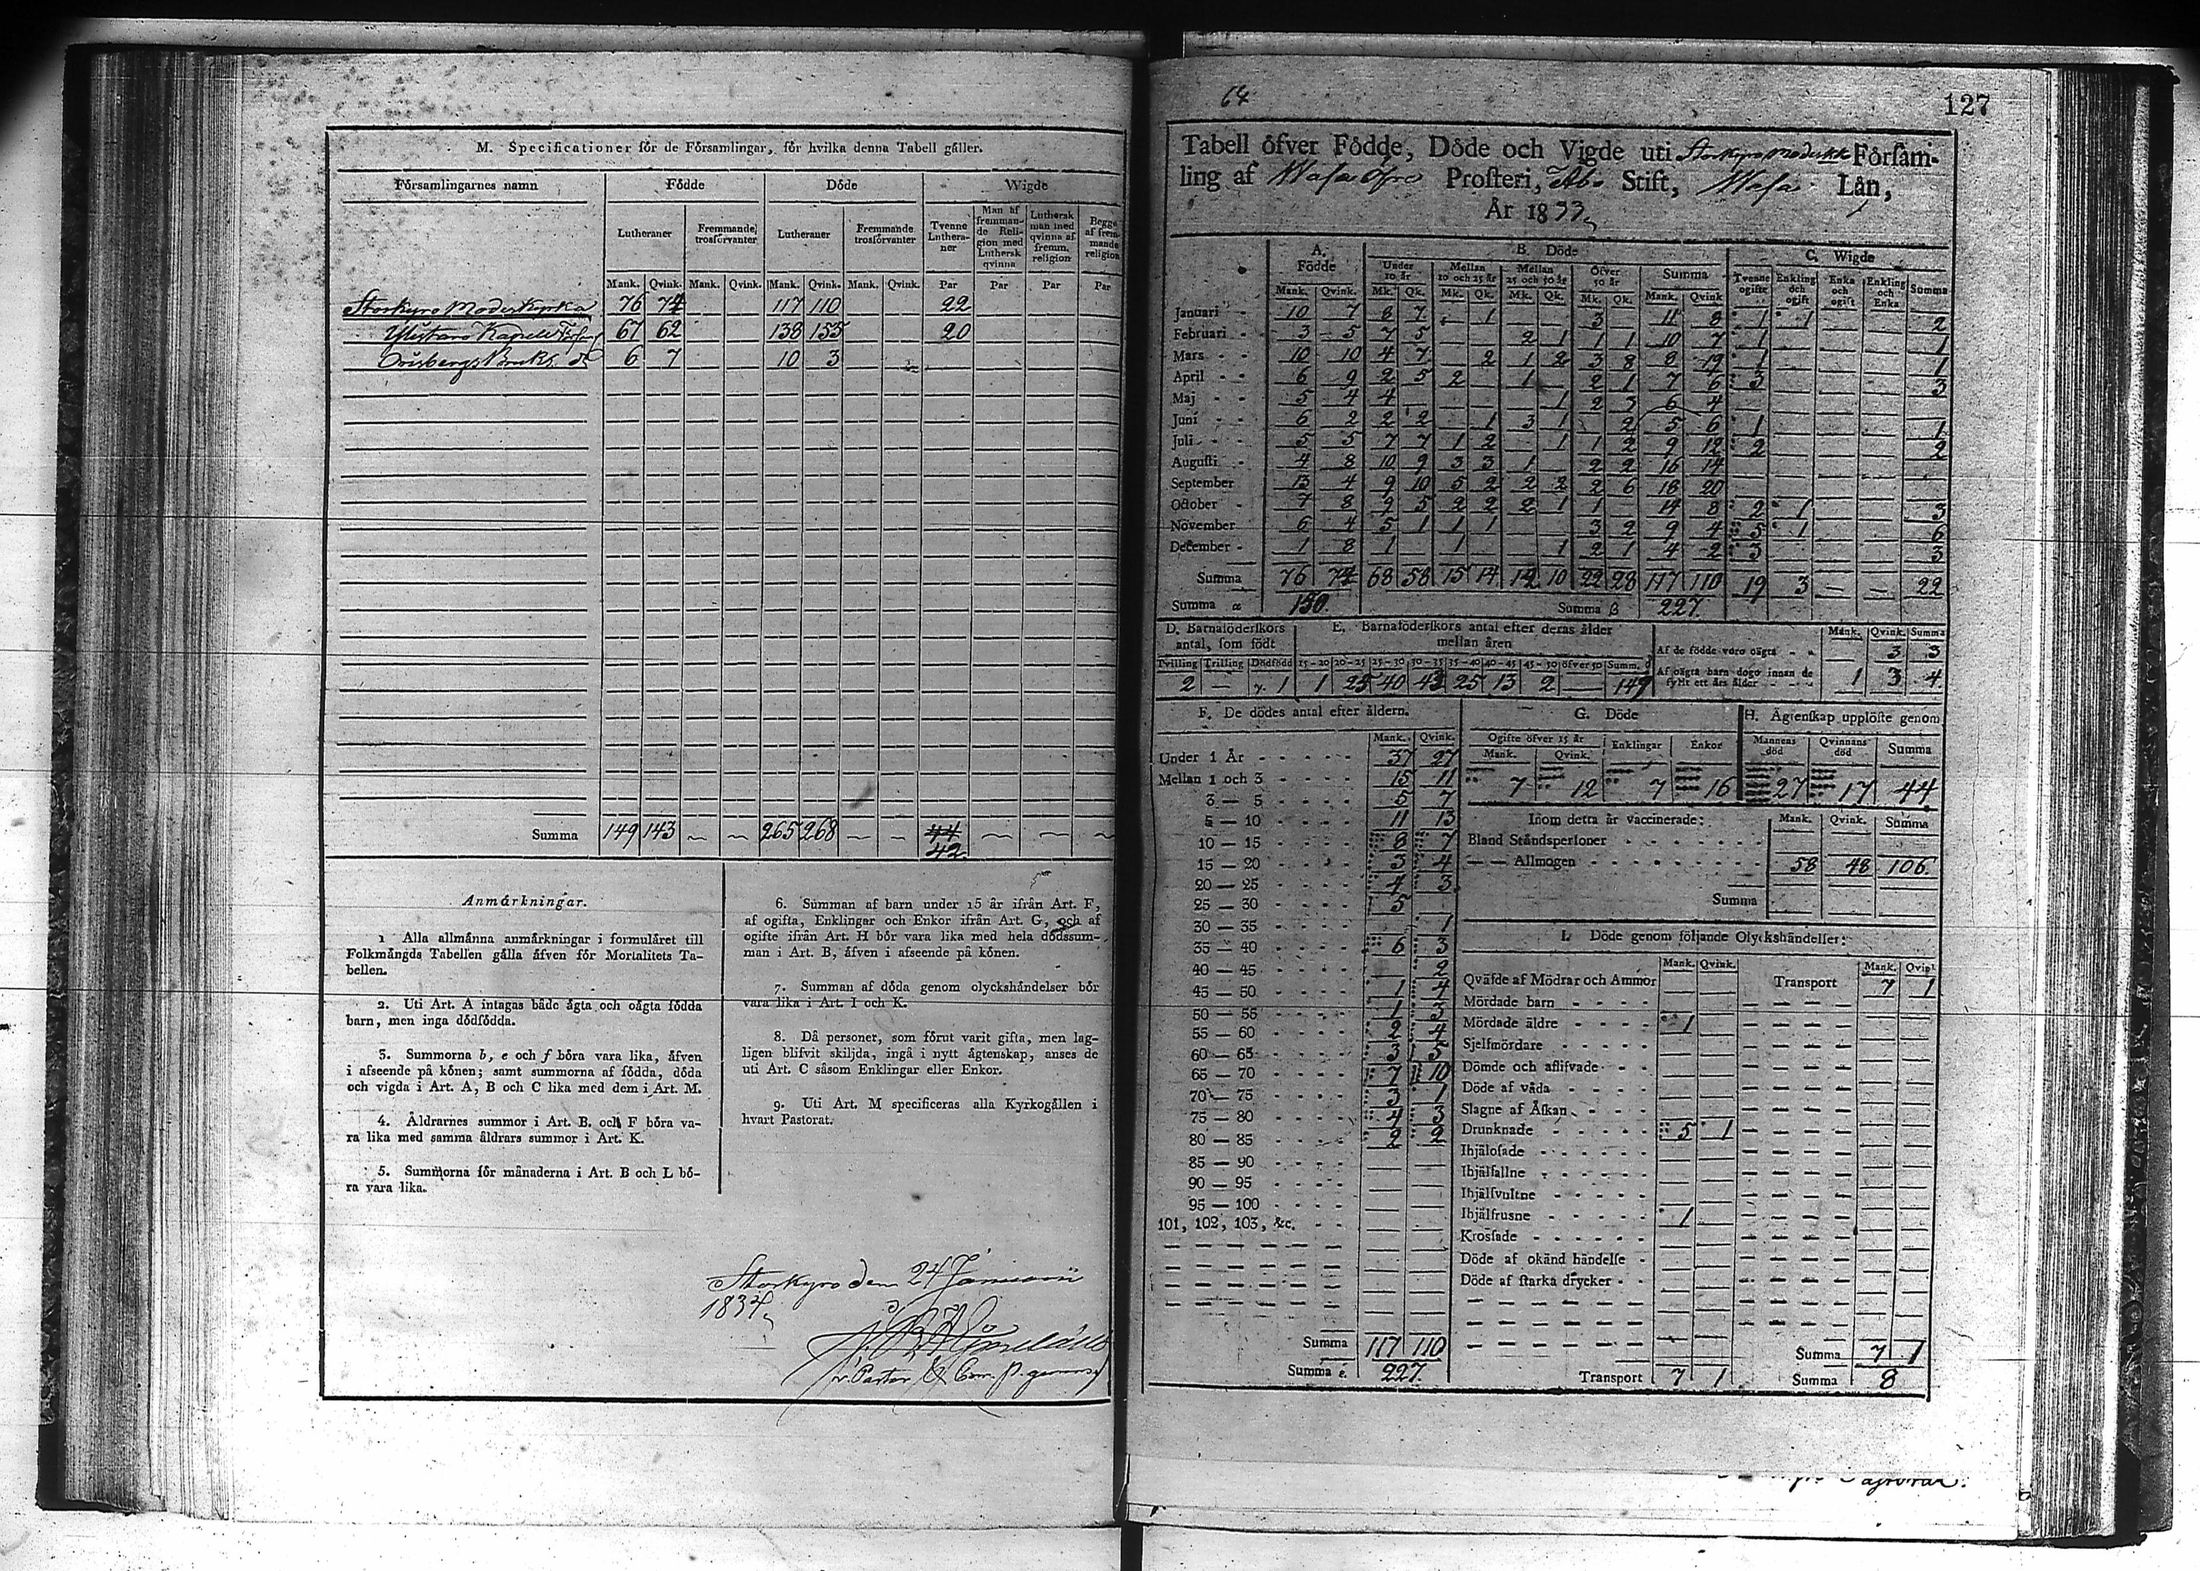 M. Specificationer för de Församlingar, för hvilka denna Tabell gäller.
Församlingarnes namn Födde Döde Wigde
Lutheraner Fremmande trosförvanter Lutheraner Fremmande trosförvanter Tvenne Lutheraner Man af fremmande Religion med Luthersk qvinna Luthersk man med qvinna af fremm. religion Begge af fremmande religion
Mank. Qvink. Mank. Qvink. Mank. Qvink. Mank. Qvink. Par Par Par Par
Storkyro Moderkyrka 76 74 117 110 22
Ylistaro Kapell 67 62 138 155 20
Orisbergs Bruks 6 7 10 3
Summa 149 143 265 268 44
42
Anmärkningar.
1 Alla allmänna anmärkningar i formuläret till
Folkmängds Tabellen gälla äfven för Mortalitets Ta-
bellen.
2. Uti Art. A intagas både ägta och oägta födda
barn, men inga dödfödda.
3. Summorna b, e och f böra vara lika, äfven
i afseende på könen; samt summorna af födda, döda
och vigda i Art. A, B och C lika med dem i Art. M.
4. Åldrarnes summor i Art. B. och F böra va-
ra lika med samma åldrars summor i Art. K.
5. Summorna för månaderna i Art. B och L bö-
ra vara lika.
6. Summan af barn under 15 år ifrån Art. F,
af ogifta, Enklingar och Enkor ifrån Art. G, och af
ogifte ifrån Art. H bör vara lika med hela dödssum-
man i Art. B, äfven i afseende på könen.
7. Summan af döda genom olyckshändelser bör
vara lika i Art. I och K.
8. Då personer, som förut varit gifta, men lag-
ligen blifvit skiljda, ingå i nytt ägtenskap, anses de
uti Art. C såsom Enklingar eller Enkor.
9. Uti Art. M specificeras alla Kyrkogällen i
hvart Pastorat.
Storkyro den 24 Januarii
1834
64
127
Tabell öfver Födde, Döde och Vigde uti Storkyro Moderk. Församling
af Wasa Öfre Prosteri, Åbo Stift, Wasa Län,
År 1833
A. Födde B. Döde C. Wigde
Under 10 år Mellan 10 och 25 år Mellan 25 och 50 år Öfver 50 år Summa Tvenne ogifte Enkling och ogift Enka och ogift Enkling och Enka Summa
Mank. Qvink. Mk. Qk. Mk. Qk. Mk. Qk. Mk. Qk. Mank. Qvink
Januari 10 7 8 7 1 3 11 8 1 1 2
Februari 3 5 7 5 2 1 1 1 10 7 1 1
Mars 10 10 4 7 2 1 2 3 8 8 19 1 1
April 6 9 2 5 2 1 2 1 7 6 3 3
Maj 5 4 4 1 2 3 6 4
Juni 6 2 2 2 1 3 1 2 5 6 1 1
Juli 5 5 7 7 1 2 1 1 2 9 12 2 2
Augusti 4 8 10 9 3 3 1 2 2 16 14
September 13 4 9 10 5 2 2 2 2 6 18 20
October 7 8 9 5 2 2 2 1 1 14 8 2 1 3
November 6 4 5 1 1 1 3 2 9 4 5 1 6
December 1 8 1 1 1 2 1 4 2 3 3
Summa 76 74 68 58 15 14 12 10 22 28 117 110 19 3 22
Summa α 150. Summa β 227.
D. Barnaföderskors antal, som födt
Tvilling Trilling Dödfödd
2 1
E. Barnaföderskors antal efter deras ålder mellan åren
15-20 20-25 25-30 30-35 35-40 40-45 45-50 öfver 50 Summ.
1 25 40 43 25 13 2 149
Mank. Qvink. Summa
Af de födde voro oägta 3 3
Af oägta barn dogo innan de fyllt ett års ålder 1 3 4.
F. De dödes antal efter åldern.
Mank. Qvink.
Under 1 År 37 27
Mellan 1 och 3 15 11
3 — 5 5 7
5 — 10 11 13
10 — 15 8 7
15 — 20 3 4
20 — 25 4 3
25 — 30 5
30 — 35 1
35 — 40 6 3
40 — 45 2
45 — 50 1 4
50 — 55 1 3
55 — 60 2 4
60 — 65 3 5
65 — 70 7 10
70 — 75 3 1
75 — 80 4 3
80 — 85 2 2
85 — 90
90 — 95
95 — 100
101, 102, 103, &c.
Summa 117 110
Summa e. 227.
G. Döde
Ogifte öfver 15 år Enklingar Enkor
Mank. Qvink.
7 12 7 16
H. Ägtenskap upplöste genom
Mannens död Qvinnans död Summa
27 17 44
Inom detta år vaccinerade: Mank. Qvink. Summa
Bland Ståndspersoner
— — Allmogen 58 48 106.
Summa
I. Döde genom följande Olyckshändelser:
Mank. Qvink. Mank. Qvink
Qväfde af Mödrar och Ammor Transport 7 1
Mördade barn
Mördade äldre 1
Sjelfmördare
Dömde och aflifvade
Döde af våda
Slagne af Åskan
Drunknade 5 1
Ihjälosade
Ihjälfallne
Ihjälsvultne
Ihjälfrusne 1
Krossade
Döde af okänd händelse
Döde af starka drycker
Summa 7 1
Transport 7 1 Summa 8